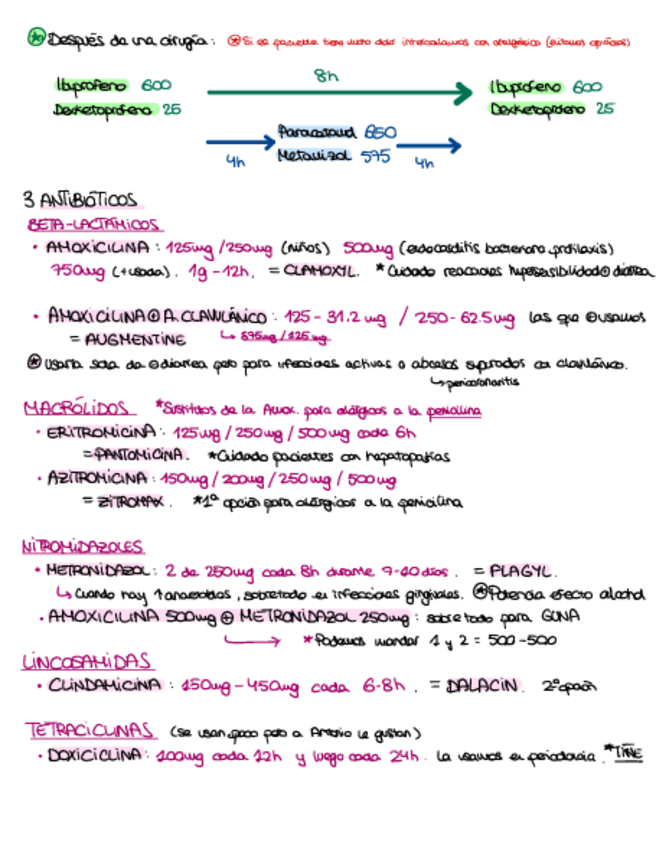 Después de una cirugía: Si el paciente tiene mucho dolor intercalamos con analgésico (evitamos opiáceos)
8h
Ibuprofeno 600 Ibuprofeno 600
Dexketoprofeno 25 Dexketoprofeno 25
Paracetamol 650
4h Metamizol 575 4h
3 ANTIBIÓTICOS
BETA-LACTÁMICOS
• AMOXICILINA: 125mg/250mg (niños) 500mg (endocarditis bacteriana, profilaxis)
750mg (+usada). 1g-12h. = CLAMOXYL. *Cuidado reacciones hipersensibilidad diarrea
• AMOXICILINA ⊕ A. CLAVULÁNICO: 125-31.2 mg / 250-62.5mg las que usamos
= AUGMENTINE ↳ 875mg/125mg.
Usarla sola da ⊖ diarrea pero para infecciones activas o abscesos supurados con clavulánico.
↳ pericoronaritis
MACRÓLIDOS *Sustitutos de la Amox. para alérgicos a la penicilina
• ERITROMICINA: 125mg/250mg/500mg cada 6h
= PANTOMICINA. *Cuidado pacientes con hepatopatías
• AZITROMICINA: 150mg/200mg/250mg/500mg
= ZITROMAX. *1ª opción para alérgicos a la penicilina
NITROMIDAZOLES
• METRONIDAZOL: 2 de 250mg cada 8h durante 7-10 días. = PLAGYL.
↳ Cuando hay ↑ anaerobios, sobretodo en infecciones gingivales. Potencia efecto alcohol
• AMOXICILINA 500mg ⊕ METRONIDAZOL 250mg: sobre todo para GUNA
→ *Podemos mandar 1 y 2 = 500-500
LINCOSAMIDAS
• CLINDAMICINA: 150mg-450mg cada 6-8h. = DALACIN. 2ª opción
TETRACICLINAS (se usan poco pero a Antonio le gustan)
• DOXICICLINA: 100mg cada 12h y luego cada 24h. La usamos en periodoncia. *TIÑE